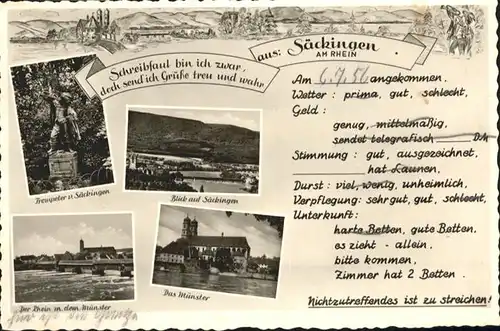 Schreibfaul bin ich zwar,
doch send ich Grüße treu und wahr
aus: Säckingen
AM RHEIN
Am 6.7.51 angekommen.
Wetter: prima, gut, schlecht,
Geld:
genug, mittelmäßig,
sendet telegrafisch D.M
Stimmung: gut, ausgezeichnet,
hat Launen,
Durst: viel, wenig, unheimlich,
Verpflegung: sehr gut, gut, schlecht,
Unterkunft:
harte Betten, gute Betten,
es zieht - allein,
bitte kommen,
Zimmer hat 2 Betten.
Nichtzutreffendes ist zu streichen!
Trompeter v. Säckingen
Blick auf Säckingen
Der Rhein m. dem Münster
Das Münster